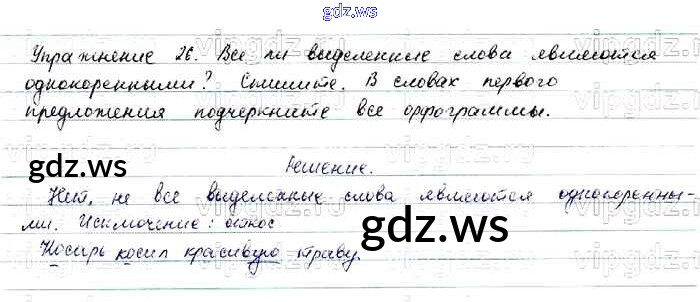 gdz.ws
Упражнение 26. Все ли выделенные слова являются
однокоренными? Спишите. В словах первого
предложения подчеркните все орфограммы.
gdz.ws
Решение.
Нет, не все выделенные слова являются однокоренны-
ми. Исключение: откос
Косарь косил красивую траву.
gdz.ws